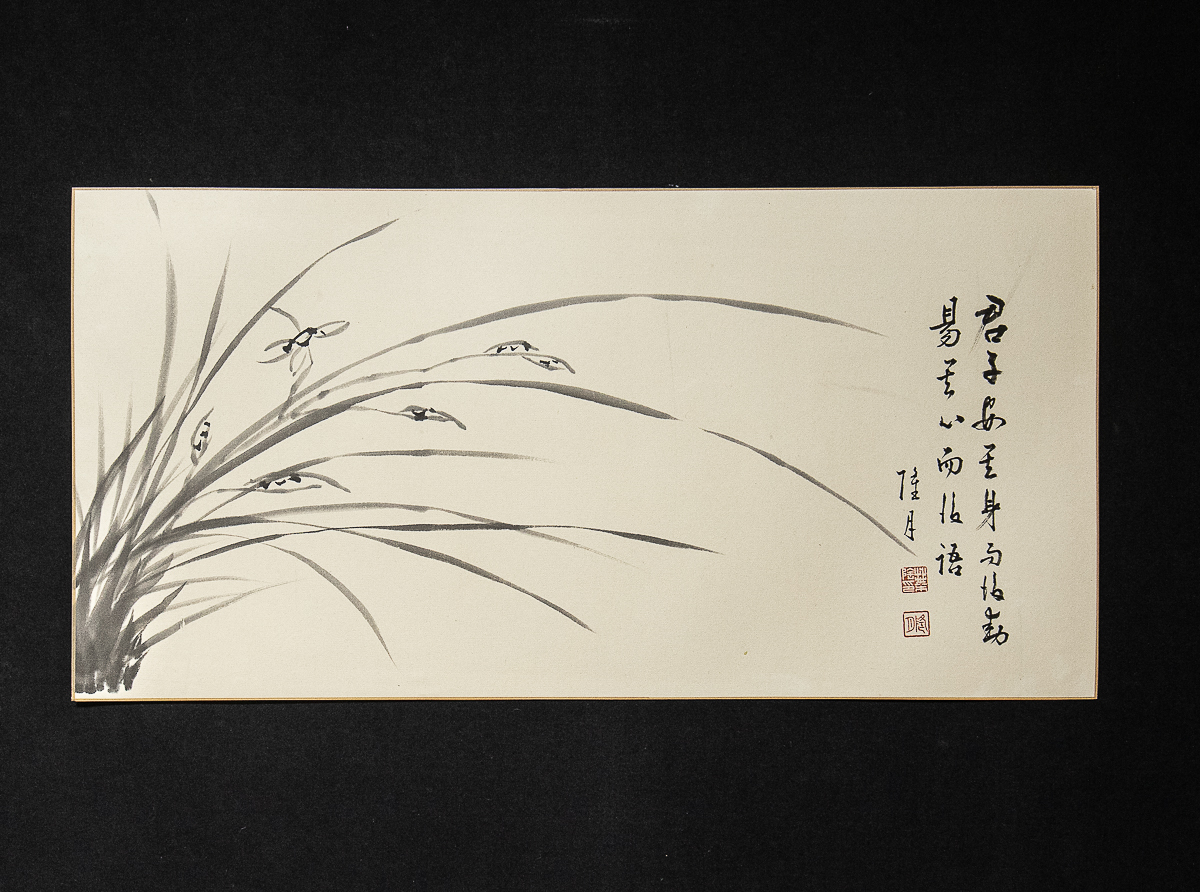 君子安其身而後動
易其心而後語
隆月